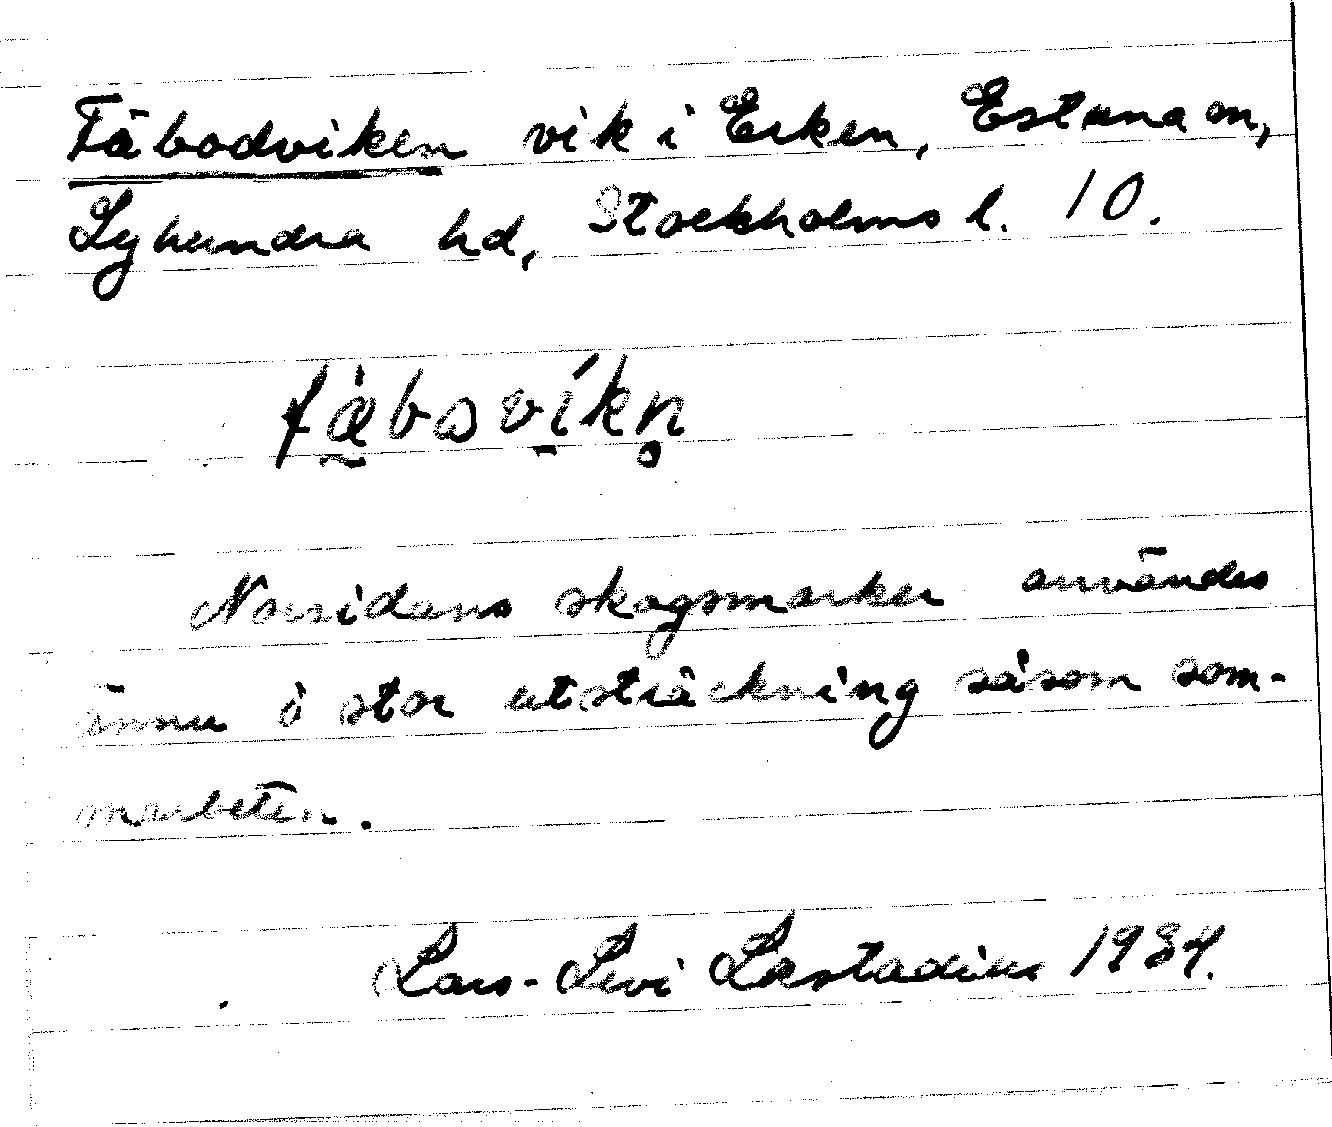 Fäbodviken vik i Erken, Estuna sn,
Lyhundra hd, Stockholms l. 10.
fæ̀bsvíkn̥
Norsidans skogsmarker användes
ännu i stor utsträckning såsom som-
marbeten.
Lars-Levi Læstadius 1934.